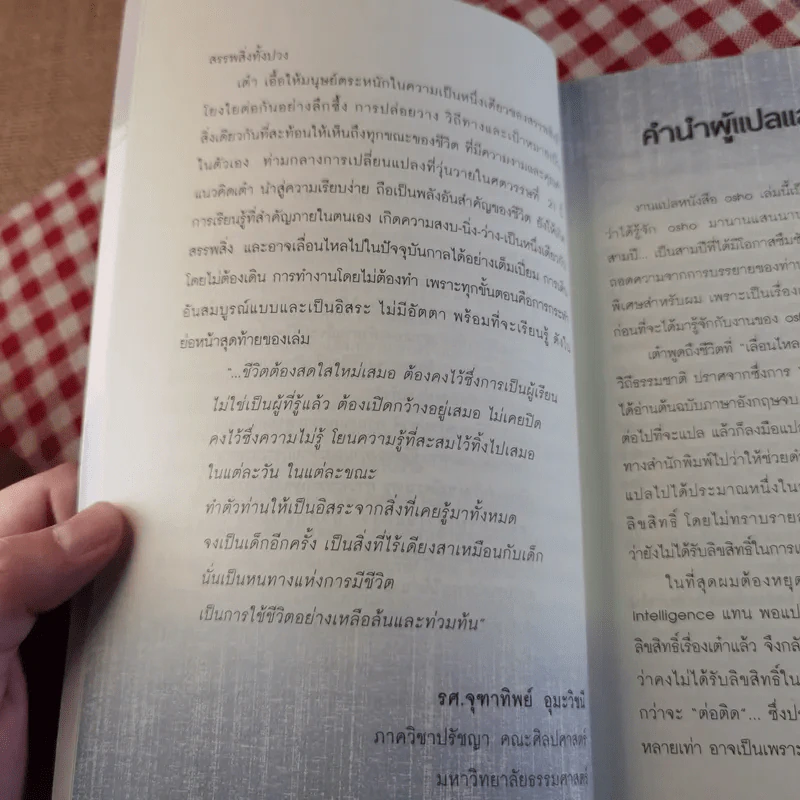 สรรพสิ่งทั้งปวง
เต๋า เอื้อให้มนุษย์ตระหนักในความเป็นหนึ่งเดียวของสรรพสิ่ง
โยงใยต่อกันอย่างลึกซึ้ง การปล่อยวาง วิถีทางและเป้าหมาย
สิ่งเดียวกันที่สะท้อนให้เห็นถึงทุกขณะของชีวิต ที่มีความงาม
ในตัวเอง ท่ามกลางการเปลี่ยนแปลงที่วุ่นวายในศตวรรษที่ 21
แนวคิดเต๋า นำสู่ความเรียบง่าย ถือเป็นพลังอันสำคัญของชีวิต
การเรียนรู้ที่สำคัญภายในตนเอง เกิดความสงบ-นิ่ง-ว่าง-เป็นหนึ่งเดียวกับ
สรรพสิ่ง และอาจเลื่อนไหลไปในปัจจุบันกาลได้อย่างเต็มเปี่ยม การเดิน
โดยไม่ต้องเดิน การทำงานโดยไม่ต้องทำ เพราะทุกขั้นตอนคือการกระทำ
อันสมบูรณ์แบบและเป็นอิสระ ไม่มีอัตตา พร้อมที่จะเรียนรู้ ดังใน
ย่อหน้าสุดท้ายของเล่ม
"...ชีวิตต้องสดใสใหม่เสมอ ต้องคงไว้ซึ่งการเป็นผู้เรียน
ไม่ใช่เป็นผู้ที่รู้แล้ว ต้องเปิดกว้างอยู่เสมอ ไม่เคยปิด
คงไว้ซึ่งความไม่รู้ โยนความรู้ที่สะสมไว้ทิ้งไปเสมอ
ในแต่ละวัน ในแต่ละขณะ
ทำตัวท่านให้เป็นอิสระจากสิ่งที่เคยรู้มาทั้งหมด
จงเป็นเด็กอีกครั้ง เป็นสิ่งที่ไร้เดียงสาเหมือนกับเด็ก
นั่นเป็นหนทางแห่งการมีชีวิต
เป็นการใช้ชีวิตอย่างเหลือล้นและท่วมท้น"
รศ.จุฑาทิพย์ อุมะวิชนี
ภาควิชาปรัชญา คณะศิลปศาสตร์
มหาวิทยาลัยธรรมศาสตร์
คำนำผู้แปล
งานแปลหนังสือ osho เล่มนี้
ว่าได้รู้จัก osho มานานแสนนาน
สามปี... เป็นสามปีที่ได้มีโอกาสซึมซับ
ถอดความจากการบรรยายของท่าน
พิเศษสำหรับผม เพราะเป็นเรื่อง
ก่อนที่จะได้มารู้จักกับงานของ
เต๋าพูดถึงชีวิตที่ "เลื่อนไหล
วิถีธรรมชาติ ปราศจากซึ่งการ
ได้อ่านต้นฉบับภาษาอังกฤษจบ
ต่อไปที่จะแปล แล้วก็ลงมือแปล
ทางสำนักพิมพ์ไปว่าให้ช่วย
แปลไปได้ประมาณหนึ่งใน
ลิขสิทธิ์ โดยไม่ทราบราย
ว่ายังไม่ได้รับลิขสิทธิ์ในการ
ในที่สุดผมต้องหยุด
Intelligence แทน พอแปล
ลิขสิทธิ์เรื่องเต๋าแล้ว จึง
ว่าคงไม่ได้รับลิขสิทธิ์ใน
กว่าจะ "ต่อติด"... ซึ่ง
หลายเท่า อาจเป็นเพราะ